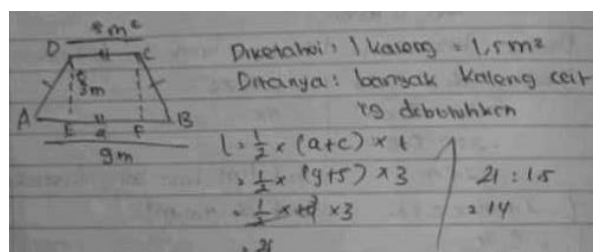 m²
D C
3m
A E F B
a
9m
Diketahui: 1 kaleng = 1,5 m²
Ditanya: banyak kaleng cat
yg dibutuhkan
L = 1/2 × (a+c) × t
= 1/2 × (9+5) × 3
= 1/2 × × 3
= 21
21 : 1.5
= 14